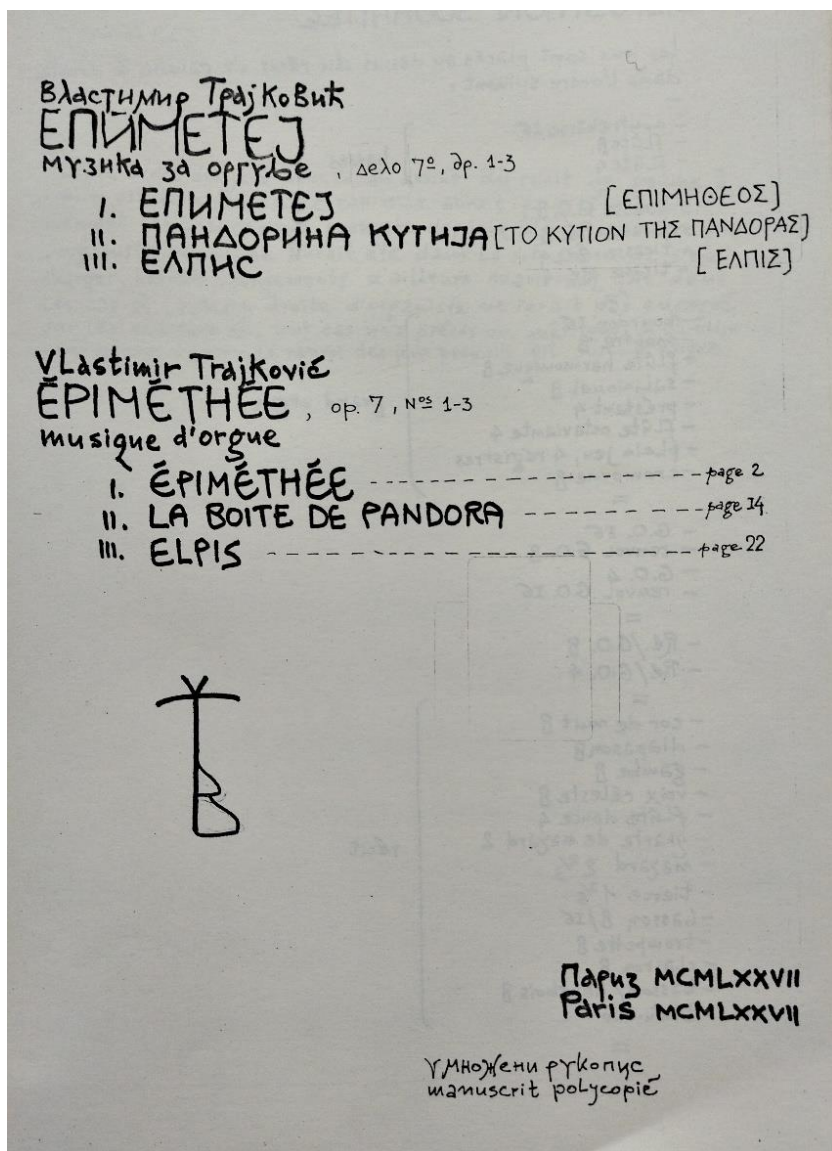 Властимир Трајковић
ЕПИМЕТЕЈ
музика за оргуље, дело 7º, бр. 1-3
I. ЕПИМЕТЕЈ [ΕΠΙΜΗΘΕΟΣ]
II. ПАНДОРИНА КУТИЈА [ΤΟ ΚΥΤΙΟΝ ΤΗΣ ΠΑΝΔΟΡΑΣ]
III. ЕЛПИС [ΕΛΠΙΣ]
Vlastimir Trajković
ÉPIMÉTHÉE, op. 7, Nos 1-3
musique d'orgue
I. ÉPIMÉTHÉE page 2
II. LA BOITE DE PANDORA page 14
III. ELPIS page 22
Париз MCMLXXVII
Paris MCMLXXVII
умножени рукопис
manuscrit polycopié